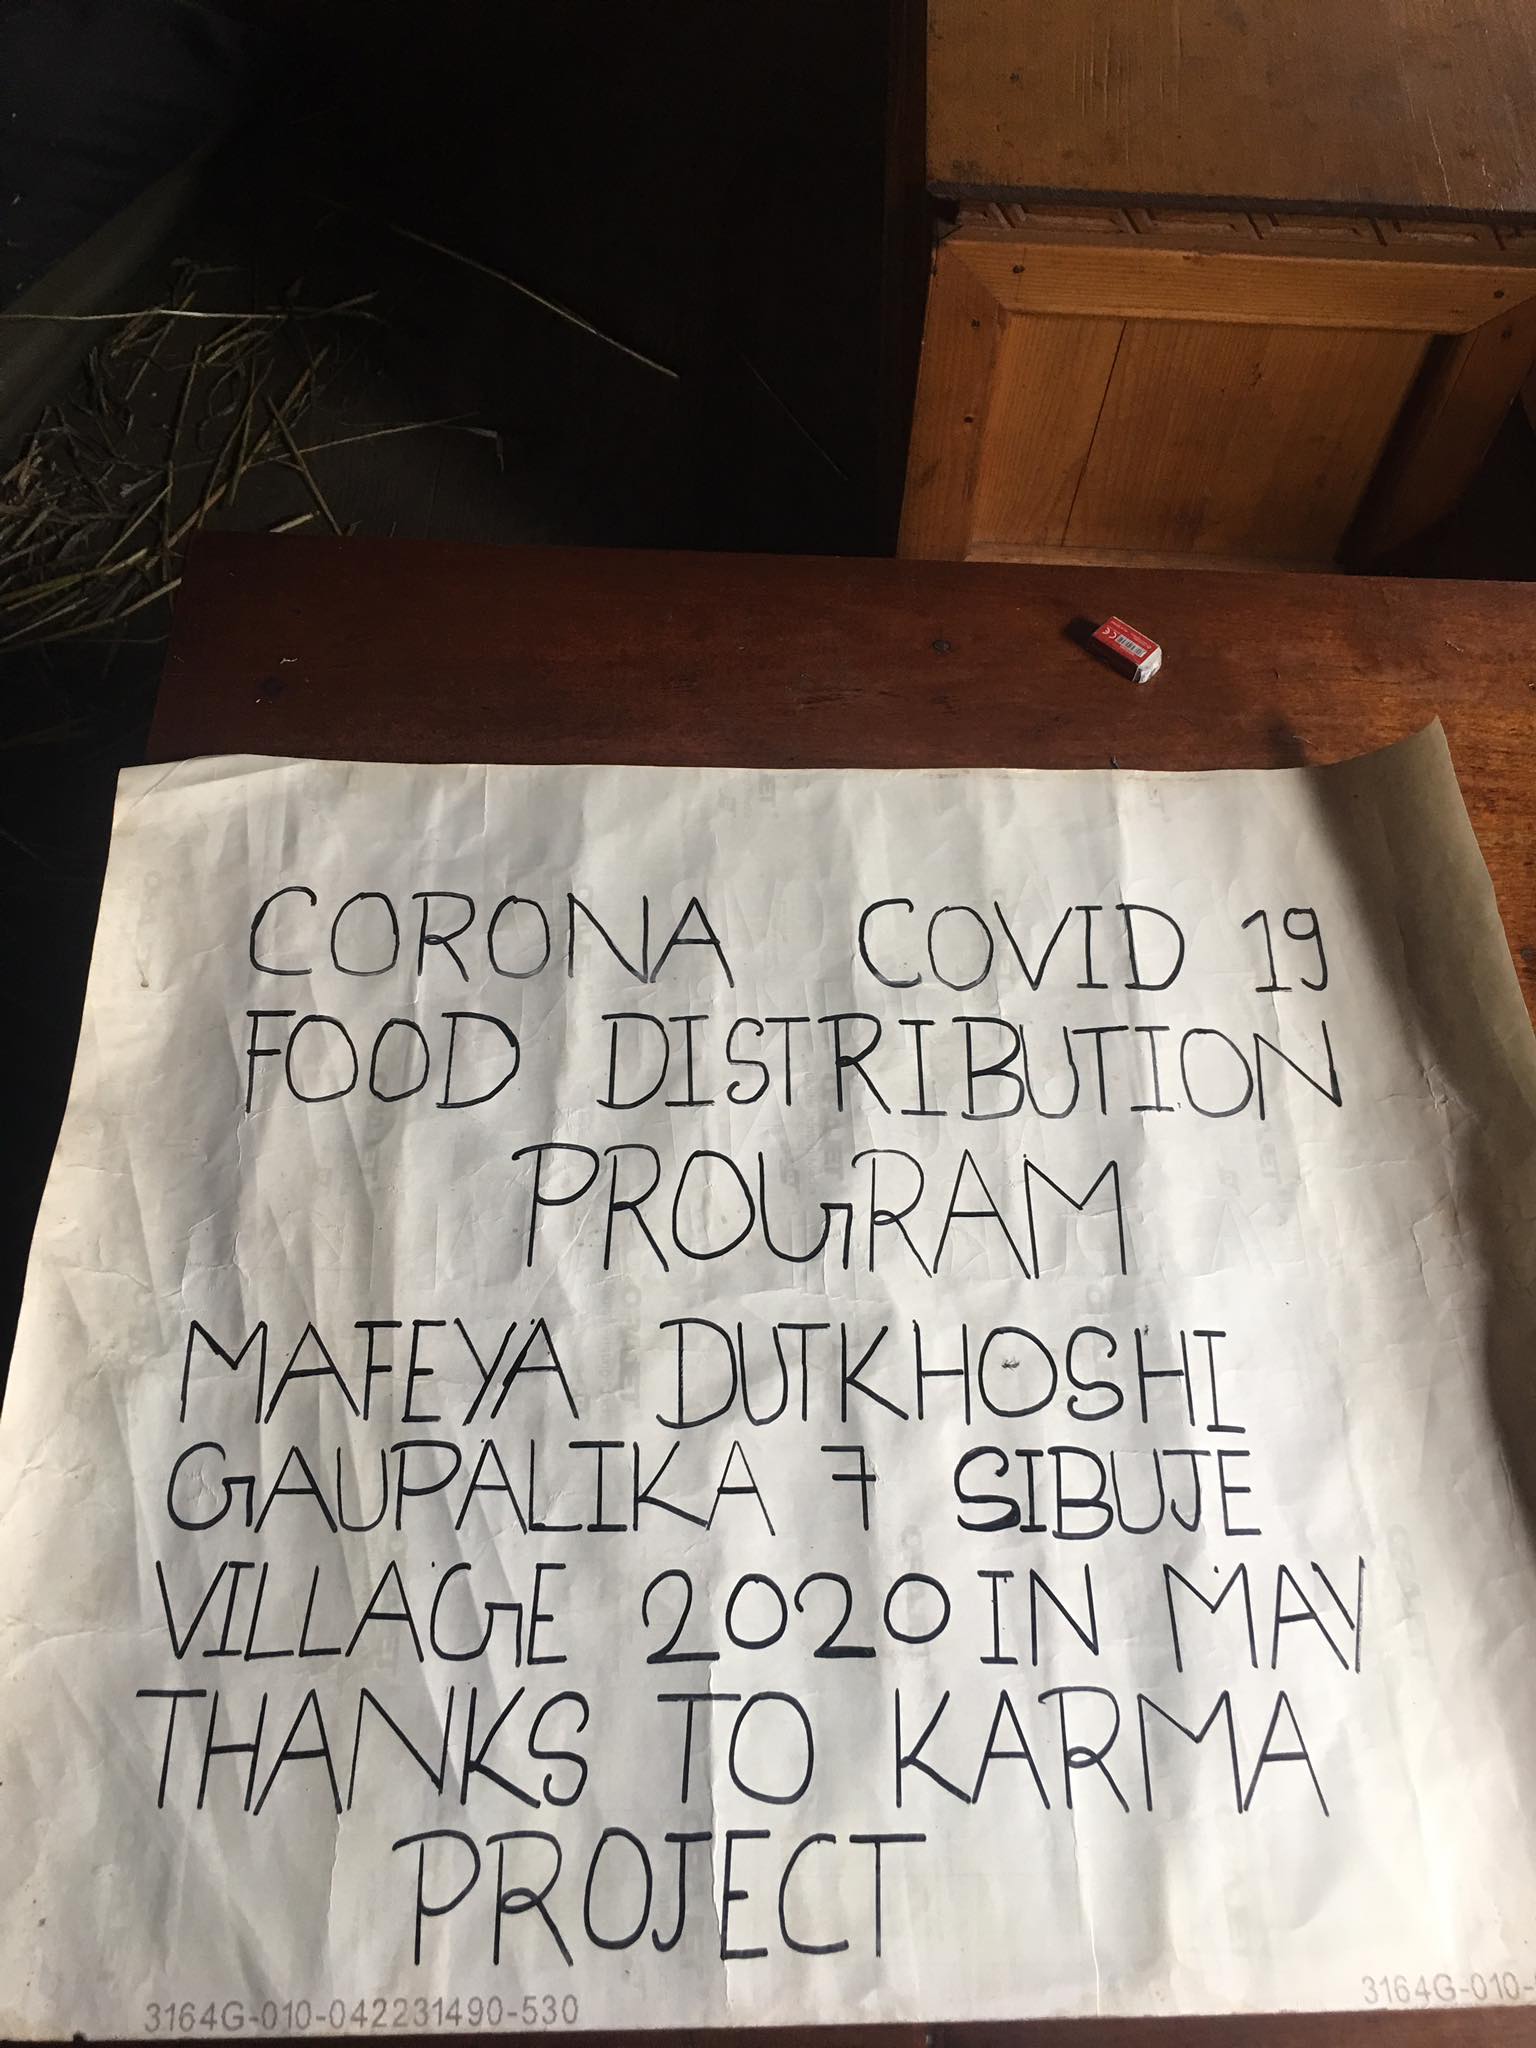 CORONA COVID 19
FOOD DISTRIBUTION
PROGRAM
MAFEYA DUTKHOSHI
GAUPALIKA 7 SIBUJE
VILLAGE 2020 IN MAY
THANKS TO KARMA
PROJECT
3164G-010-042231490-530
3164G-010-